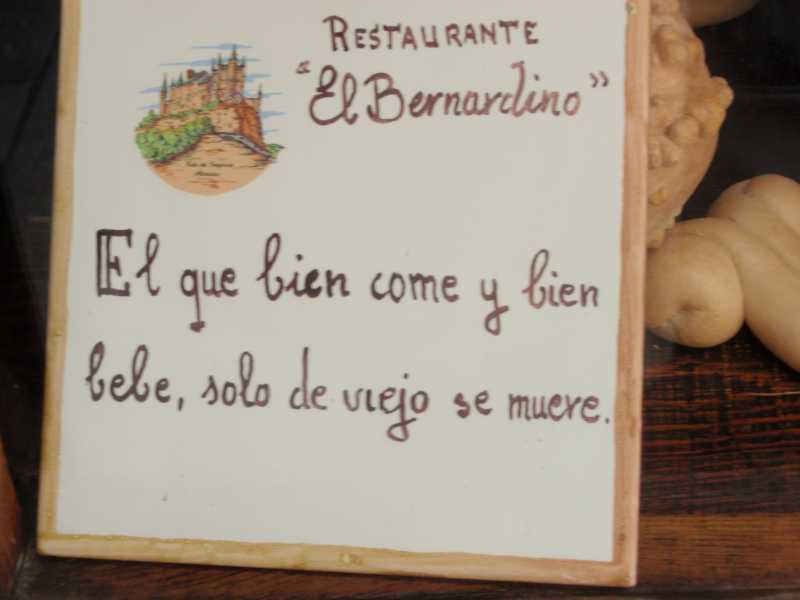 RESTAURANTE
"El Bernardino"
El que bien come y bien
bebe, solo de viejo se muere.